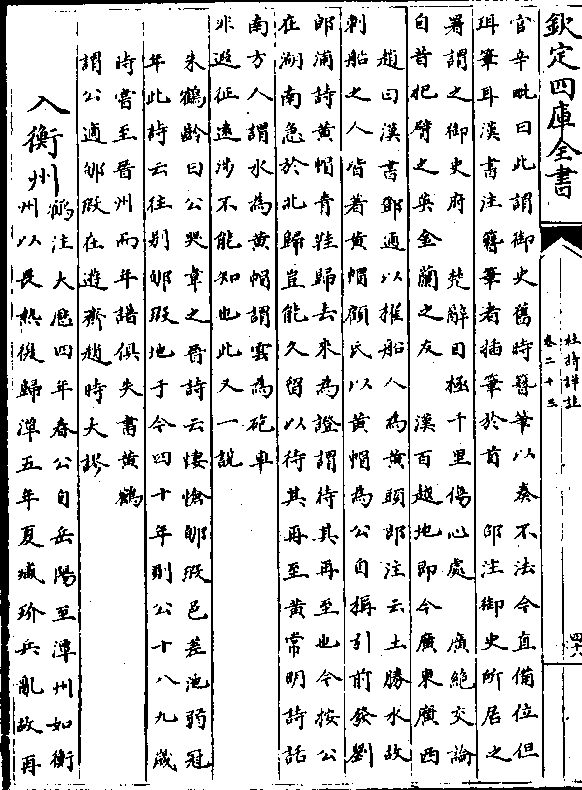 欽定四庫全書
杜詩詳註
卷二十三
四十八
官辛毗曰此謂御史舊時簪筆以奏不法今直備位但
珥筆耳漢書注簪筆者插筆於首 邵注御史所居之
署謂之御史府 楚辭目極千里傷心處 廣絶交論
自昔把臂之英金蘭之友 漢百越地即今廣東廣西
趙曰漢書鄧通以擢船人為黄頭郎注云土勝水故
刺船之人皆著黄帽顧氏以黄帽為公自稱引前發劉
郎浦詩黄帽青鞋歸去來為證謂待其再至也今按公
在湖南急於北歸豈能久留以待其再至黄常明詩話
南方人謂水為黄帽謂雲為砲車
非遐征遠涉不能知也此又一說
朱鶴齡曰公哭韋之晉詩云悽愴郇瑕邑差池弱冠
年此詩云往别郇瑕地于今四十年則公十八九歳
時嘗至晉州而年譜俱失書黄鶴
謂公適郇瑕在遊齊趙時大謬
入衡州
鶴注大厯四年春公自岳陽至潭州如衡
州以畏熱復歸潭五年夏臧玠兵亂故再